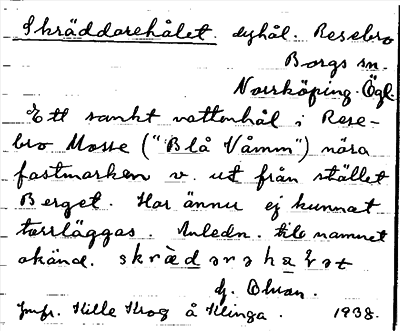 Skräddarehålet. dyhål. Resebro
Borgs sn.
Norrköping. Ögl.
Ett sankt vattenhål i Rese-
bro Mosse ("Blå Våmm") nära
fastmarken v. ut från stället
Berget. Har ännu ej kunnat
torrläggas. Anledn. till namnet
okänd. skrädərəhaɫət
Hj. Olwan.
Jmfr. Kille Krog å Klinga. 1938.